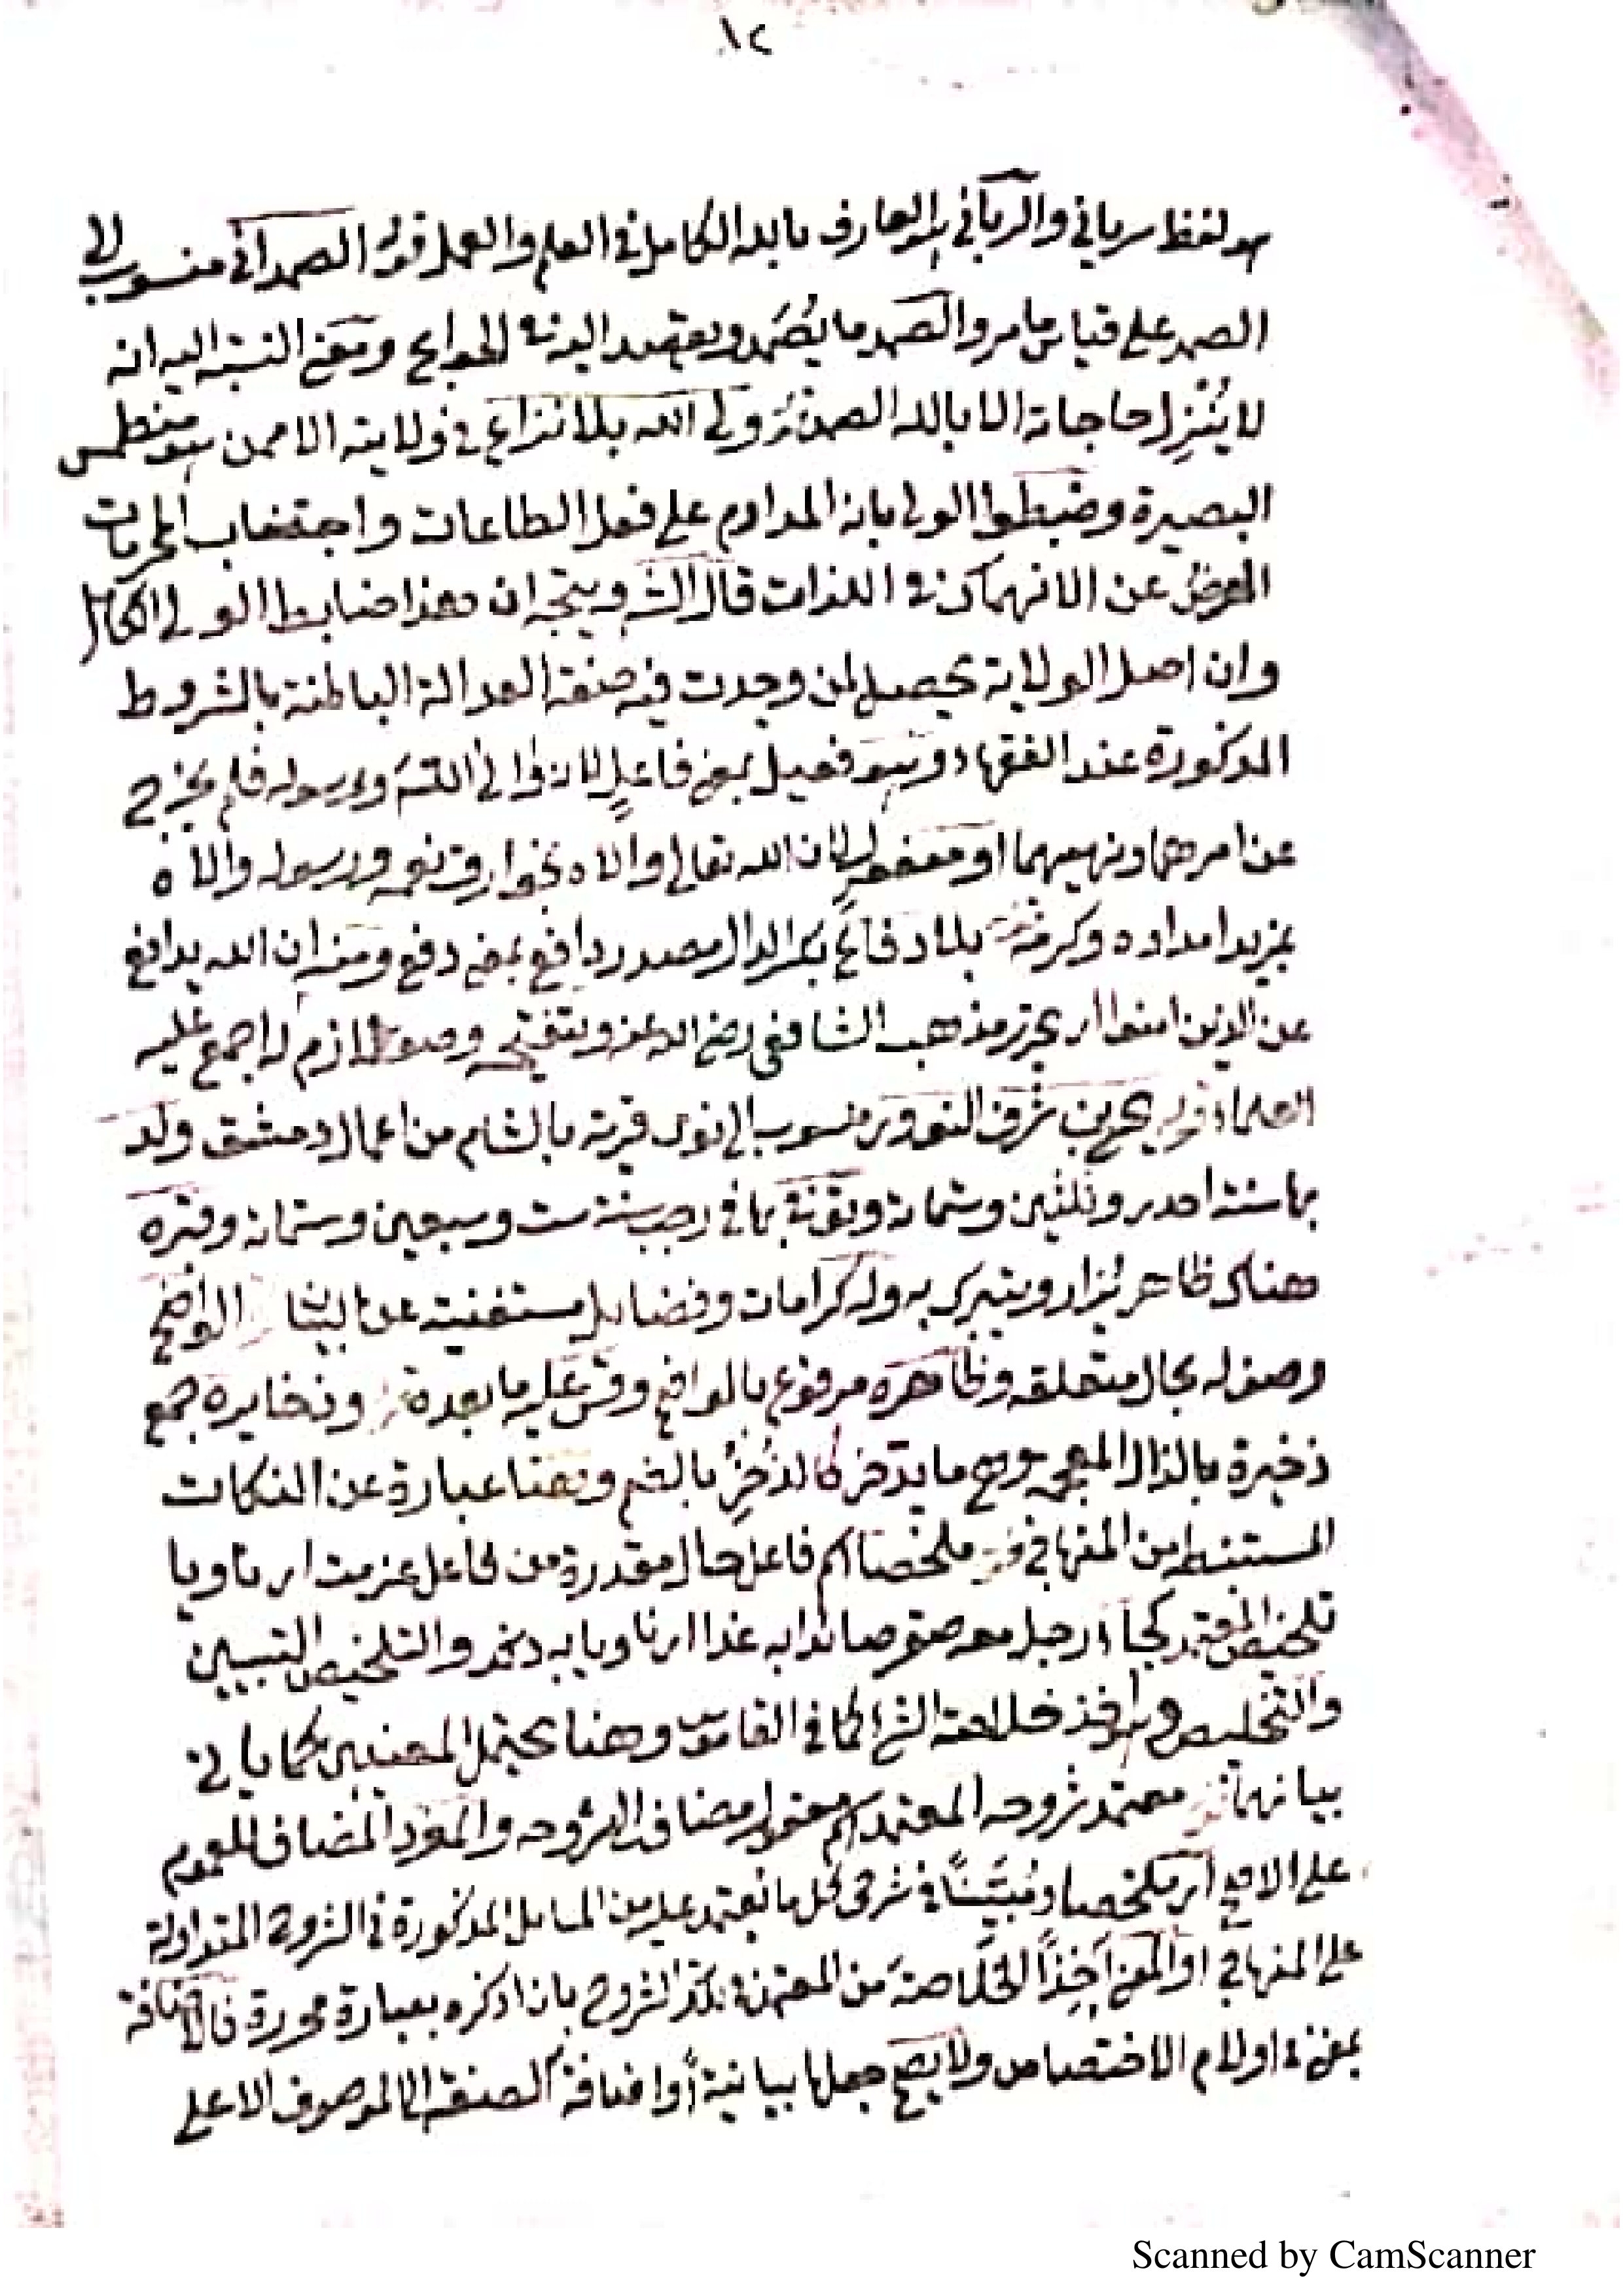 ١٢
هو لفظ سرياني والرباني هو العارف بالله الكامل في العلم والعمل قوله الصمداني منسوب الى
الصمد على قياس ما مر والصمد ما يُصمَد ويقصد اليه في الحوائج ومعنى النسبة اليه انه
لا يُنْزِل حاجاته الا بالله الصمد ولي الله بلا نزاع في ولايته الا ممن هو منطمس
البصيرة وضبطوا الولي بانه المداوم على فعل الطاعات واجتناب المحرمات
المعرض عن الانهماك في اللذات قال الش ويتجه ان هذا ضابط الولي الكامل
وان اصل الولاية يحصل لمن وجدت فيه صفة العدالة الباطنة بالشروط
المذكورة عند الفقهاء وهو فعيل بمعنى فاعل لانه والى الله ورسوله فلم يخرج
عن امرهما ونهيهما او مفعول لان الله تعالى والاه بخوارق نعمه ورسوله والاه
بمزيد امداده وكرمه بلا دفاع بكسر الدال مصدر دافع بمعنى دفع ومنه ان الله يدافع
عن الذين امنوا اي محرر مذهب الشافعي رضي الله عنه وهو لازم لما اجمع عليه
العلماء يحيى بن شرف النووي منسوب الى نوى قرية بالشام من اعمال دمشق ولد
بها سنة احدى وثلثين وستماة وتوفي بها في رجب سنة ست وسبعين وستماة وقبره
هناك ظاهر يُزار ويتبرك به وله كرامات وفضايل مستغنية عن البيان الواضح
وصف له بحال متعلقه وظاهره مرفوع بالواضح وقس عليه ما بعده وذخايره جمع
ذخيرة بالذال المعجمه وهي ما يدخر كالذُخر بالضم وهنا عبارة عن النكات
المستنبطه من المنهاج ملخصا اسم فاعل حال مقدرة من فاعل عزمت اي ناويا
تلخيص المعتمد كجاء رجل معه صقر صائدا به غدا اي ناويا به ذلك والتلخيص التبيين
والتخليص وهو اخذ خلاصة الشئ كما في القاموس وهنا يحتمل المعنيين كما ياتي
بيانهما معتمد شروحه المعتمد اسم مفعول مضاف الى شروحه والمفرد المضاف للعموم
على الاصح اي ملخصا ومُبَيِّنًا في شرحي كل ما يعتمد عليه من المسايل المذكورة في الشروح المتداولة
على المنهاج او المعنى آخِذًا الخلاصة من المعتمد في تلك الشروح بان اذكره بعبارة محررة فالاضافة
بمعنى في او لام الاختصاص ولا يصح جعلها بيانية او اضافة الصفة الى الموصوف الا على
Scanned by CamScanner